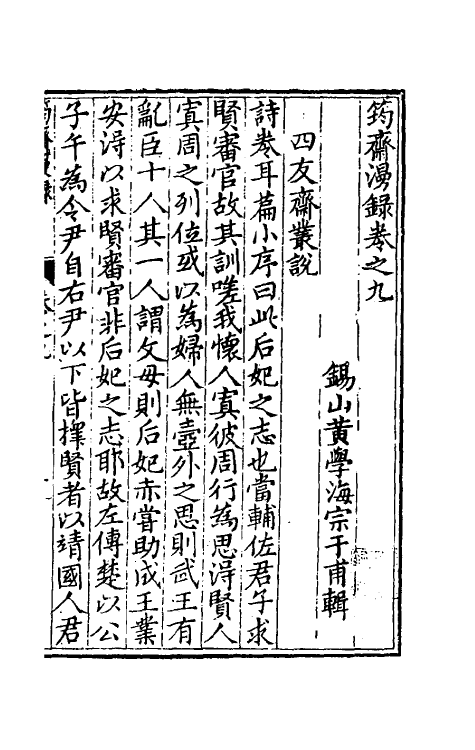 筠齋漫録卷之九
錫山黃學海宗于甫輯
四友齋叢說
詩卷耳篇小序曰此后妃之志也當輔佐君子求
賢審官故其訓嗟我懷人寘彼周行為思淂賢人
寘周之列位或以為婦人無壼外之思則武王有
亂臣十人其一人謂文母則后妃亦嘗助成王業
安淂以求賢審官非后妃之志耶故左傳楚以公
子午為令尹自右尹以下皆擇賢者以靖國人君